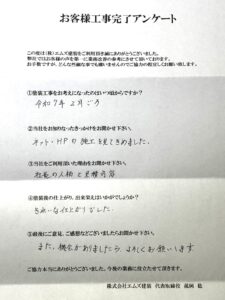 お客様工事完了アンケート
この度は(株)エムズ建装をご利用頂き誠にありがとうございました。
弊社ではお客様の声を第一に業務改善の参考にさせて頂いております。
お手数ですが、どんな些細な事でも構いませんのでご協力の程宜しくお願い致します。
①塗装工事をお考えになったのはいつ頃からですか？
令和7年2月ごろ
②当社をお知りなったきっかけをお聞かせ下さい。
ネット・HPの施工を見てきめました。
③当社をご利用頂いた理由をお聞かせ下さい。
社長の人柄と見積内容
④塗装後の仕上がり、出来栄えはいかがでしょうか？
きれいな仕上がりでした。
⑤最後にご意見、ご感想などございましたらお聞かせ下さい。
また、機会がありましたら、よろしくお願いします
ご協力本当にありがとうございました。今後の業務に役立たせて頂きます。
株式会社エムズ建装 代表取締役